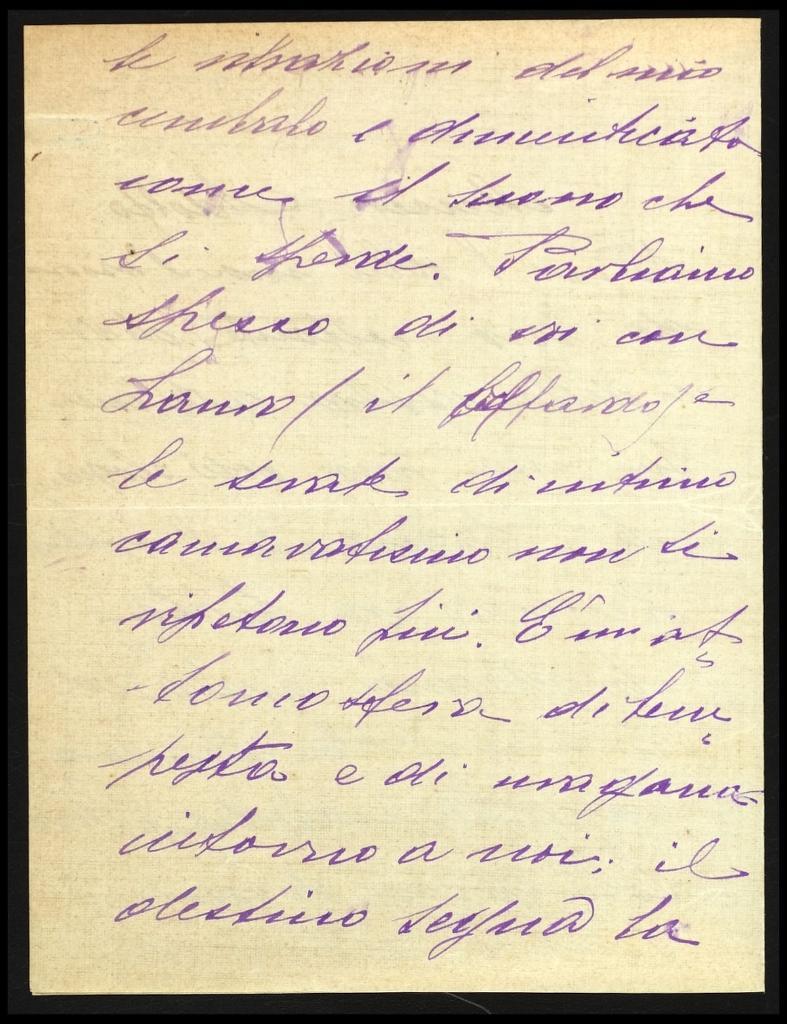 le vibrazioni del mio
cembalo e dimenticato
come il suono che
si sperde. Parliamo
spesso di voi con
Laura (il ) e
le serate di intimo
cameratismo non si
ripetono più. È un at-
tomosfera di tem-
pesta e di uragano
intorno a noi; il
destino segna la